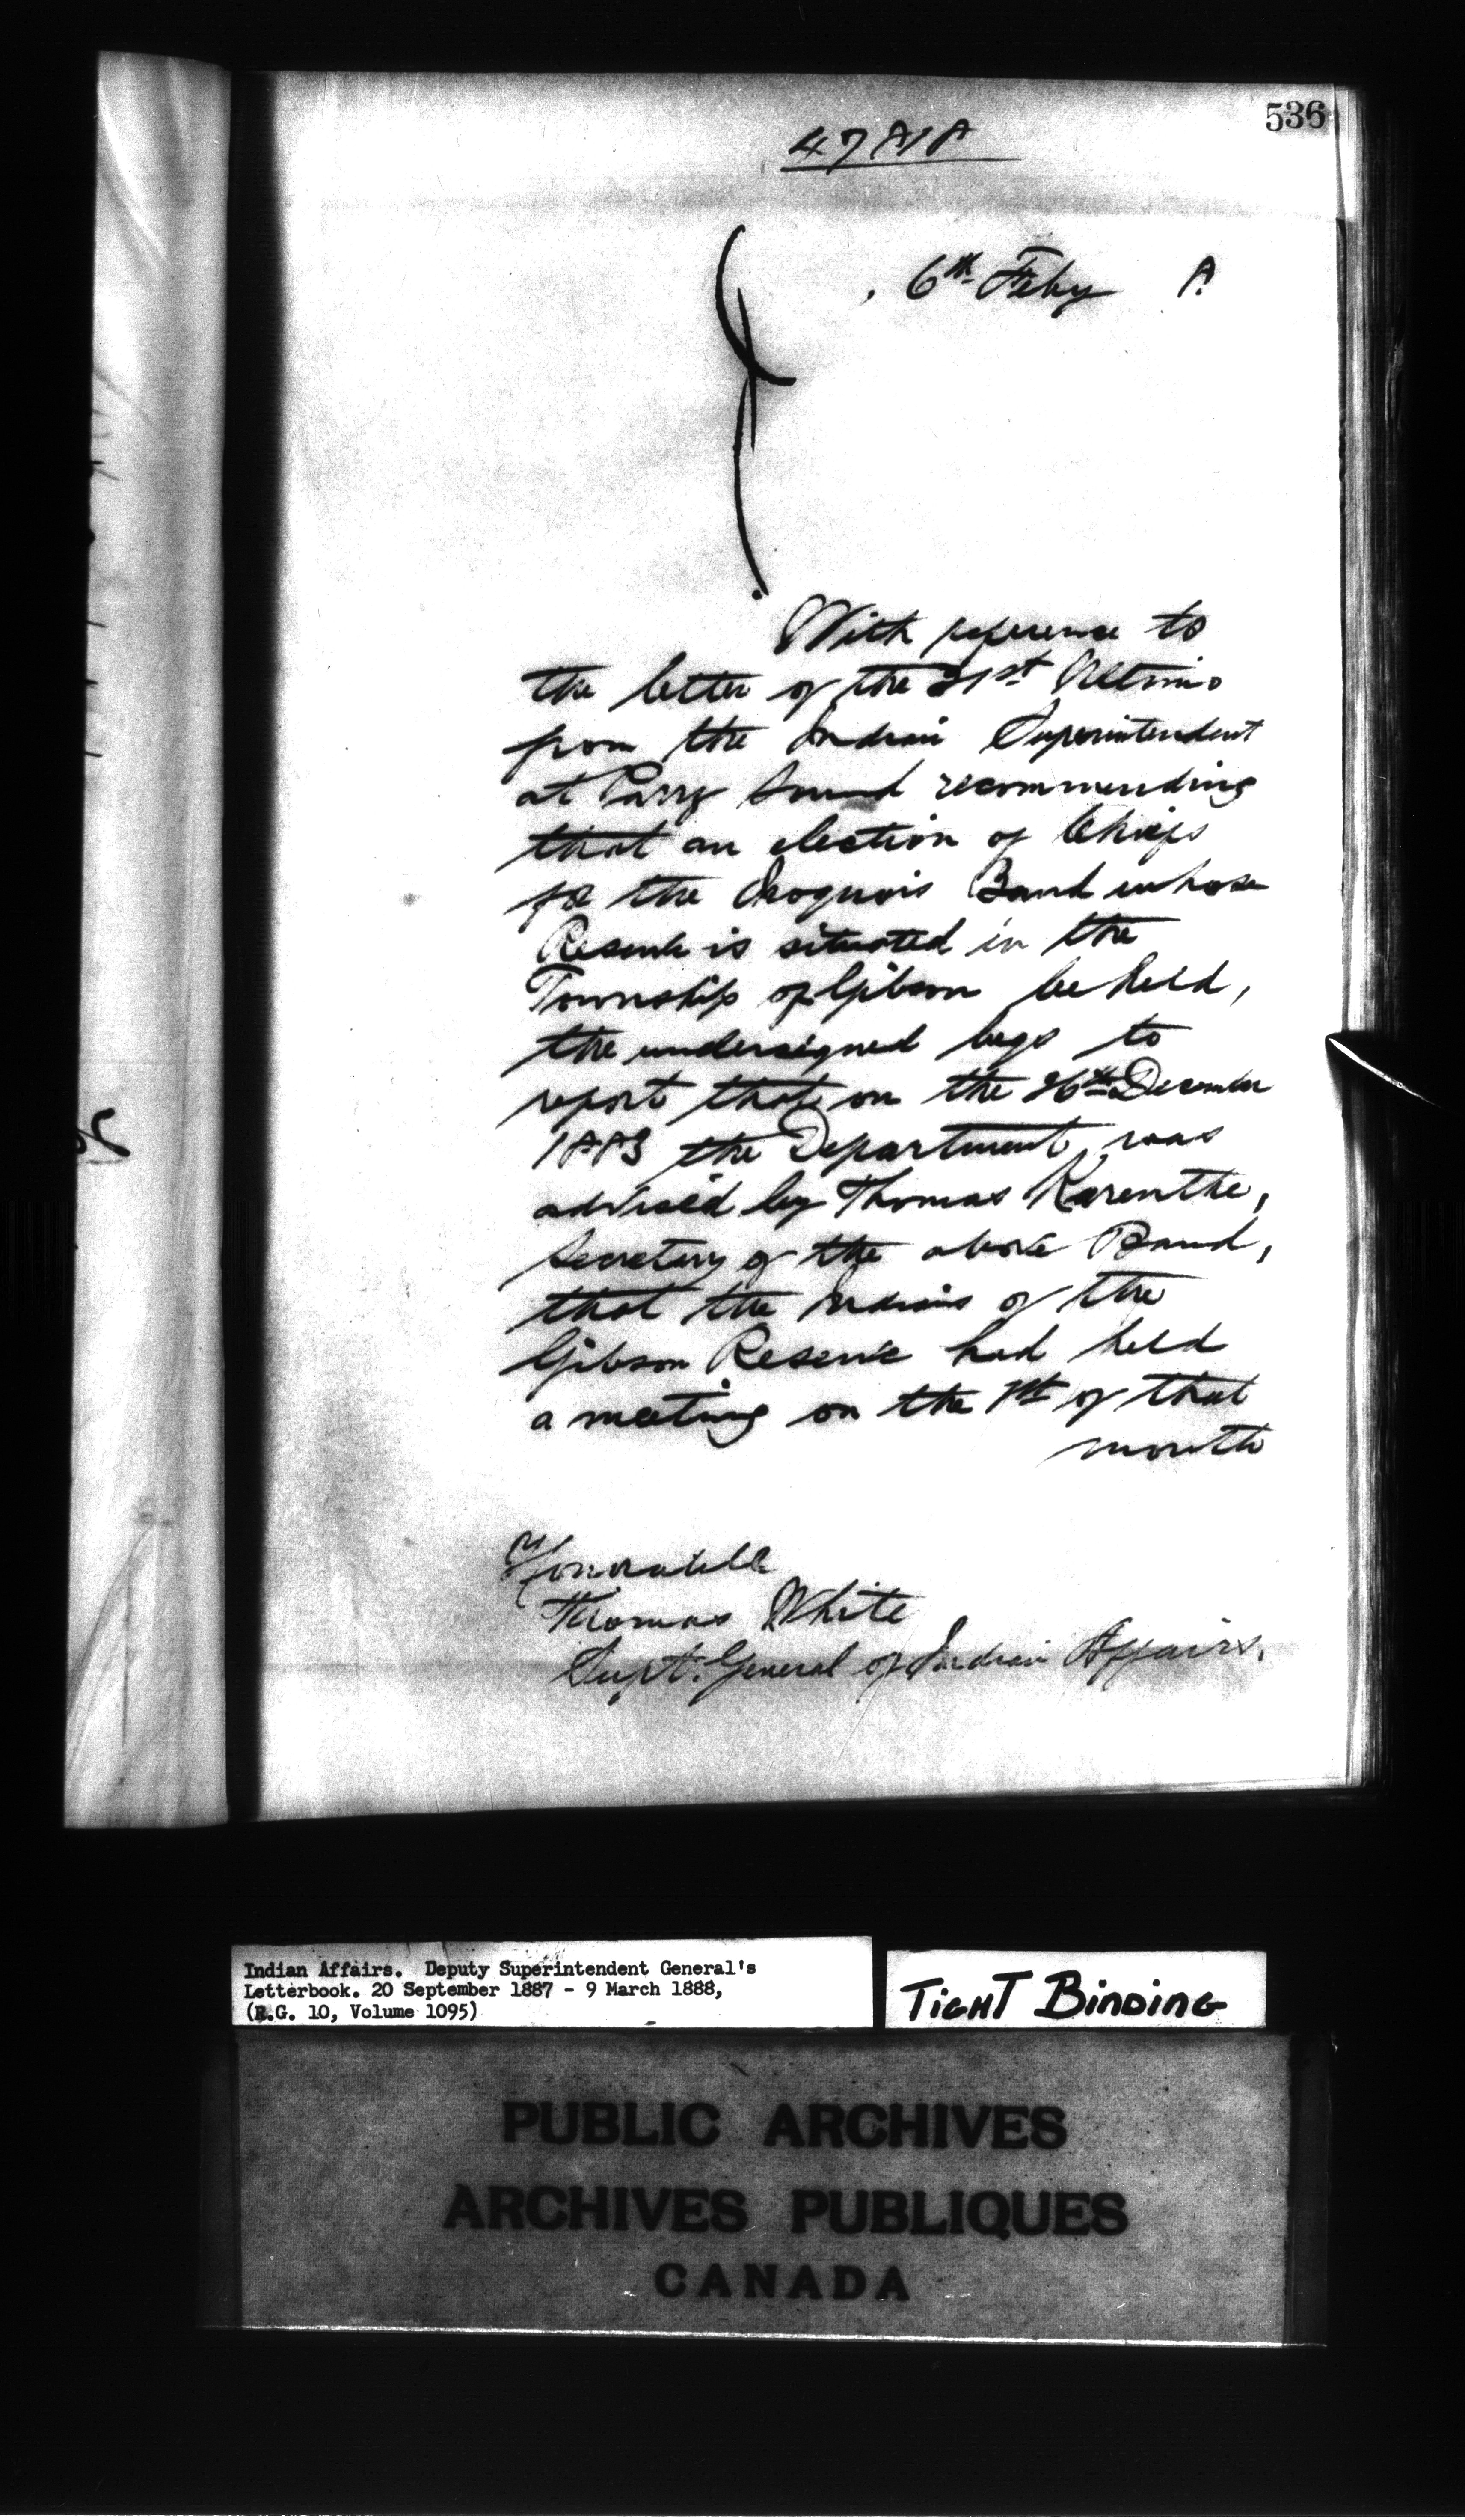 536
47818
6th Feby 8.
With reference to
the letter of the 21st Ultimo
from the Indian Superintendent
at Parry Sound recommending
that an election of Chiefs
for the Iroquois Band whose
Reserve is situated in the
Township of Gibson be held,
the undersigned begs to
report that on the 26th December
1883 the Department was
advised by Thomas Karenthe,
Secretary of the above Band,
that the Indians of the
Gibson Reserve had held
a meeting on the of that
month
Honorable
Thomas White
Supt. General of Indian Affairs.
Indian Affairs. Deputy Superintendent General's
Letterbook. 20 September 1887 - 9 March 1888,
(R.G. 10, Volume 1095)
TIGHT BINDING
PUBLIC ARCHIVES
ARCHIVES PUBLIQUES
CANADA